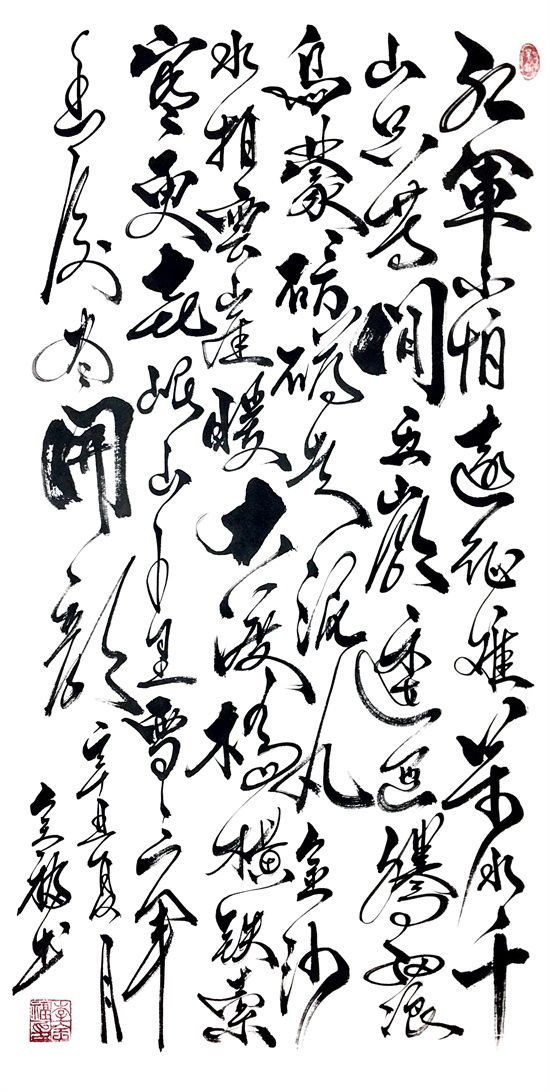 红軍不怕遠征難萬水千
山只等閒五嶺逶迤騰細浪
烏蒙磅礴走泥丸金沙
水拍雲崖暖大渡橋橫铁索
寒更喜岷山千里雪三軍
過後尽開顏
辛丑夏月
金福书
李金福印